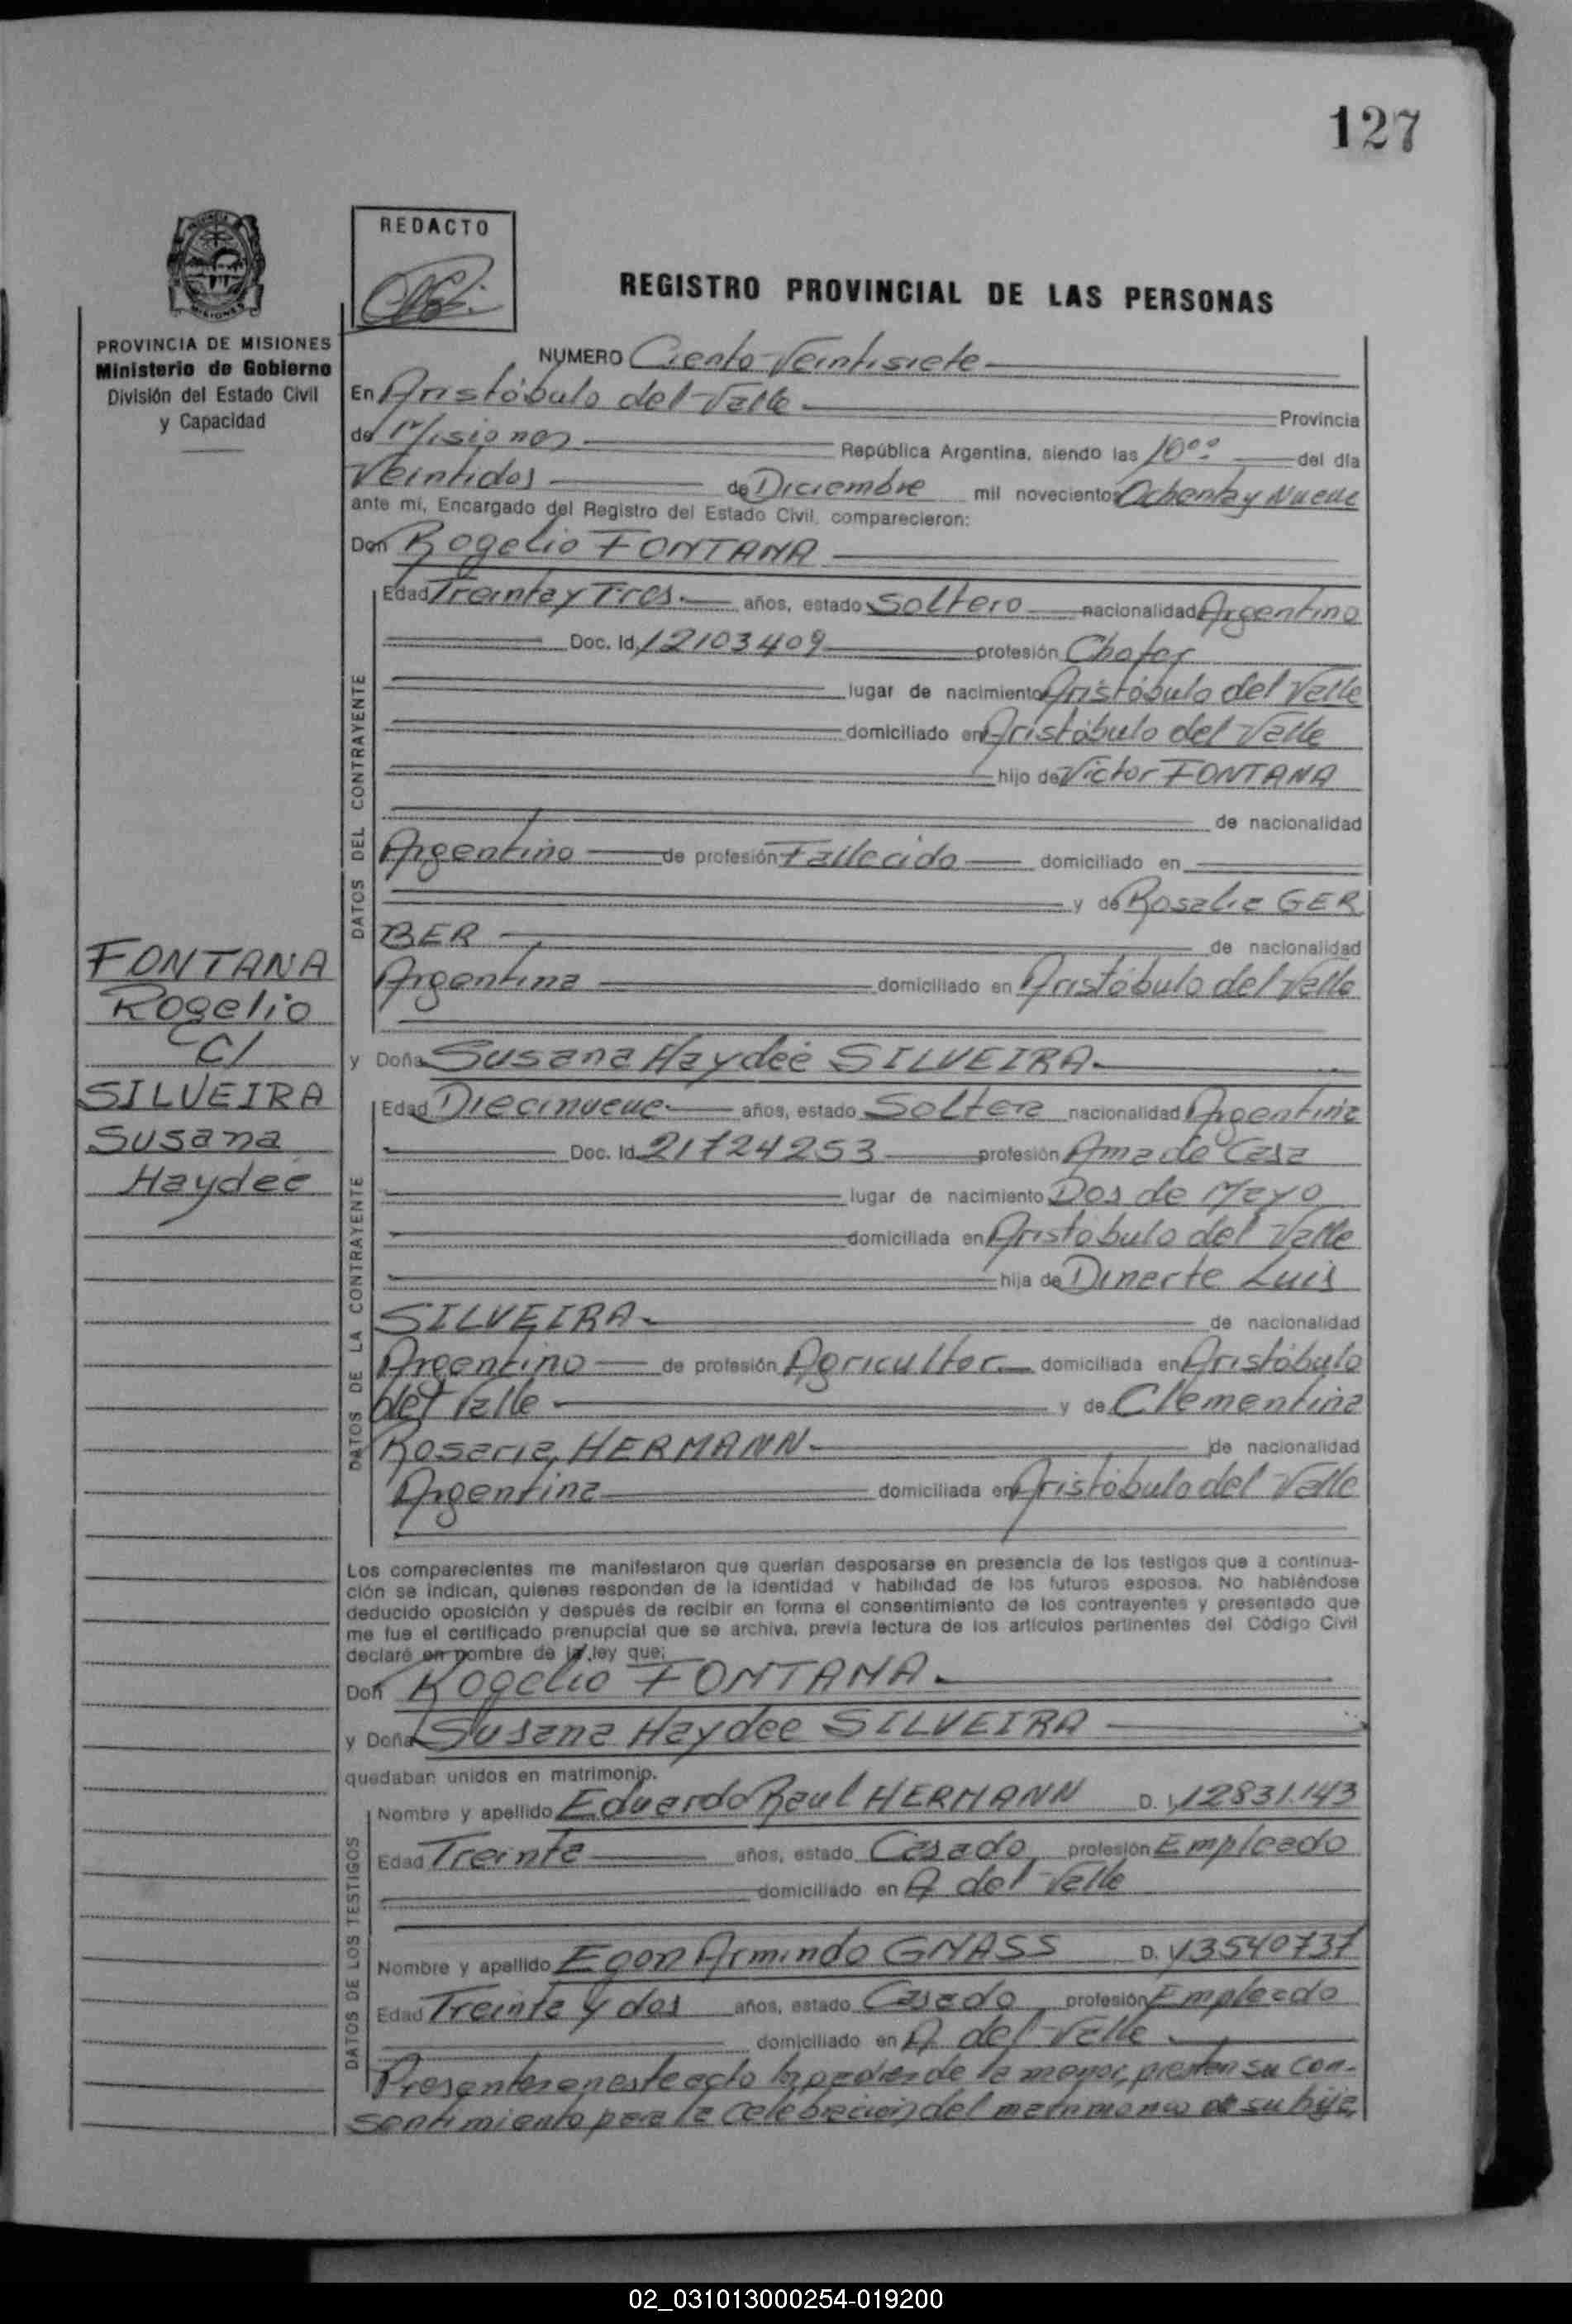 127
REDACTO
REGISTRO PROVINCIAL DE LAS PERSONAS
PROVINCIA DE MISIONES
Ministerio de Gobierno
División del Estado Civil
y Capacidad
FONTANA
Rogelio
C/
SILVEIRA
Susana
Haydee
NUMERO Ciento Veintisiete
En Aristóbulo del Valle Provincia
de Misiones República Argentina, siendo las 10°° del día
Veintidos de Diciembre mil novecientos Ochenta y Nueve
ante mí, Encargado del Registro del Estado Civil, comparecieron:
Don Rogelio FONTANA
DATOS DEL CONTRAYENTE
Edad Treinta y Tres años, estado Soltero nacionalidad Argentino
Doc. Id. 12103409 profesión Chofer
lugar de nacimiento Aristóbulo del Valle
domiciliado en Aristóbulo del Valle
hijo de Victor FONTANA
de nacionalidad
Argentino de profesión Fallecido domiciliado en
y de Rosalia GER
BER de nacionalidad
Argentina domiciliado en Aristóbulo del Valle
y Doña Susana Haydeé SILVEIRA
DATOS DE LA CONTRAYENTE
Edad Diecinueve años, estado Soltera nacionalidad Argentina
Doc. Id. 21724253 profesión Ama de Casa
lugar de nacimiento Dos de Mayo
domiciliada en Aristóbulo del Valle
hija de Dinarte Luis
SILVEIRA de nacionalidad
Argentino de profesión Agricultor domiciliada en Aristóbulo
del Valle y de Clementina
Rosaria HERMANN de nacionalidad
Argentina domiciliada en Aristóbulo del Valle
Los comparecientes me manifestaron que querían desposarse en presencia de los testigos que a continua-
ción se indican, quienes responden de la identidad y habilidad de los futuros esposos. No habiéndose
deducido oposición y después de recibir en forma el consentimiento de los contrayentes y presentado que
me fue el certificado prenupcial que se archiva, previa lectura de los artículos pertinentes del Código Civil
declaré en nombre de la ley que:
Don Rogelio FONTANA
y Doña Susana Haydee SILVEIRA
quedaban unidos en matrimonio.
DATOS DE LOS TESTIGOS
Nombre y apellido Eduardo Raul HERMANN D. I. 12831.143
Edad Treinta años, estado Casado profesión Empleado
domiciliado en A del Valle
Nombre y apellido Egon Armindo GNASS D. I 13540737
Edad Treinta y dos años, estado Casado profesión Empleado
domiciliado en A. del Valle
Presentes en este acto los padres de la menor, presten su con-
sentimiento para la celebración del matrimonio de su hija
02_031013000254-019200